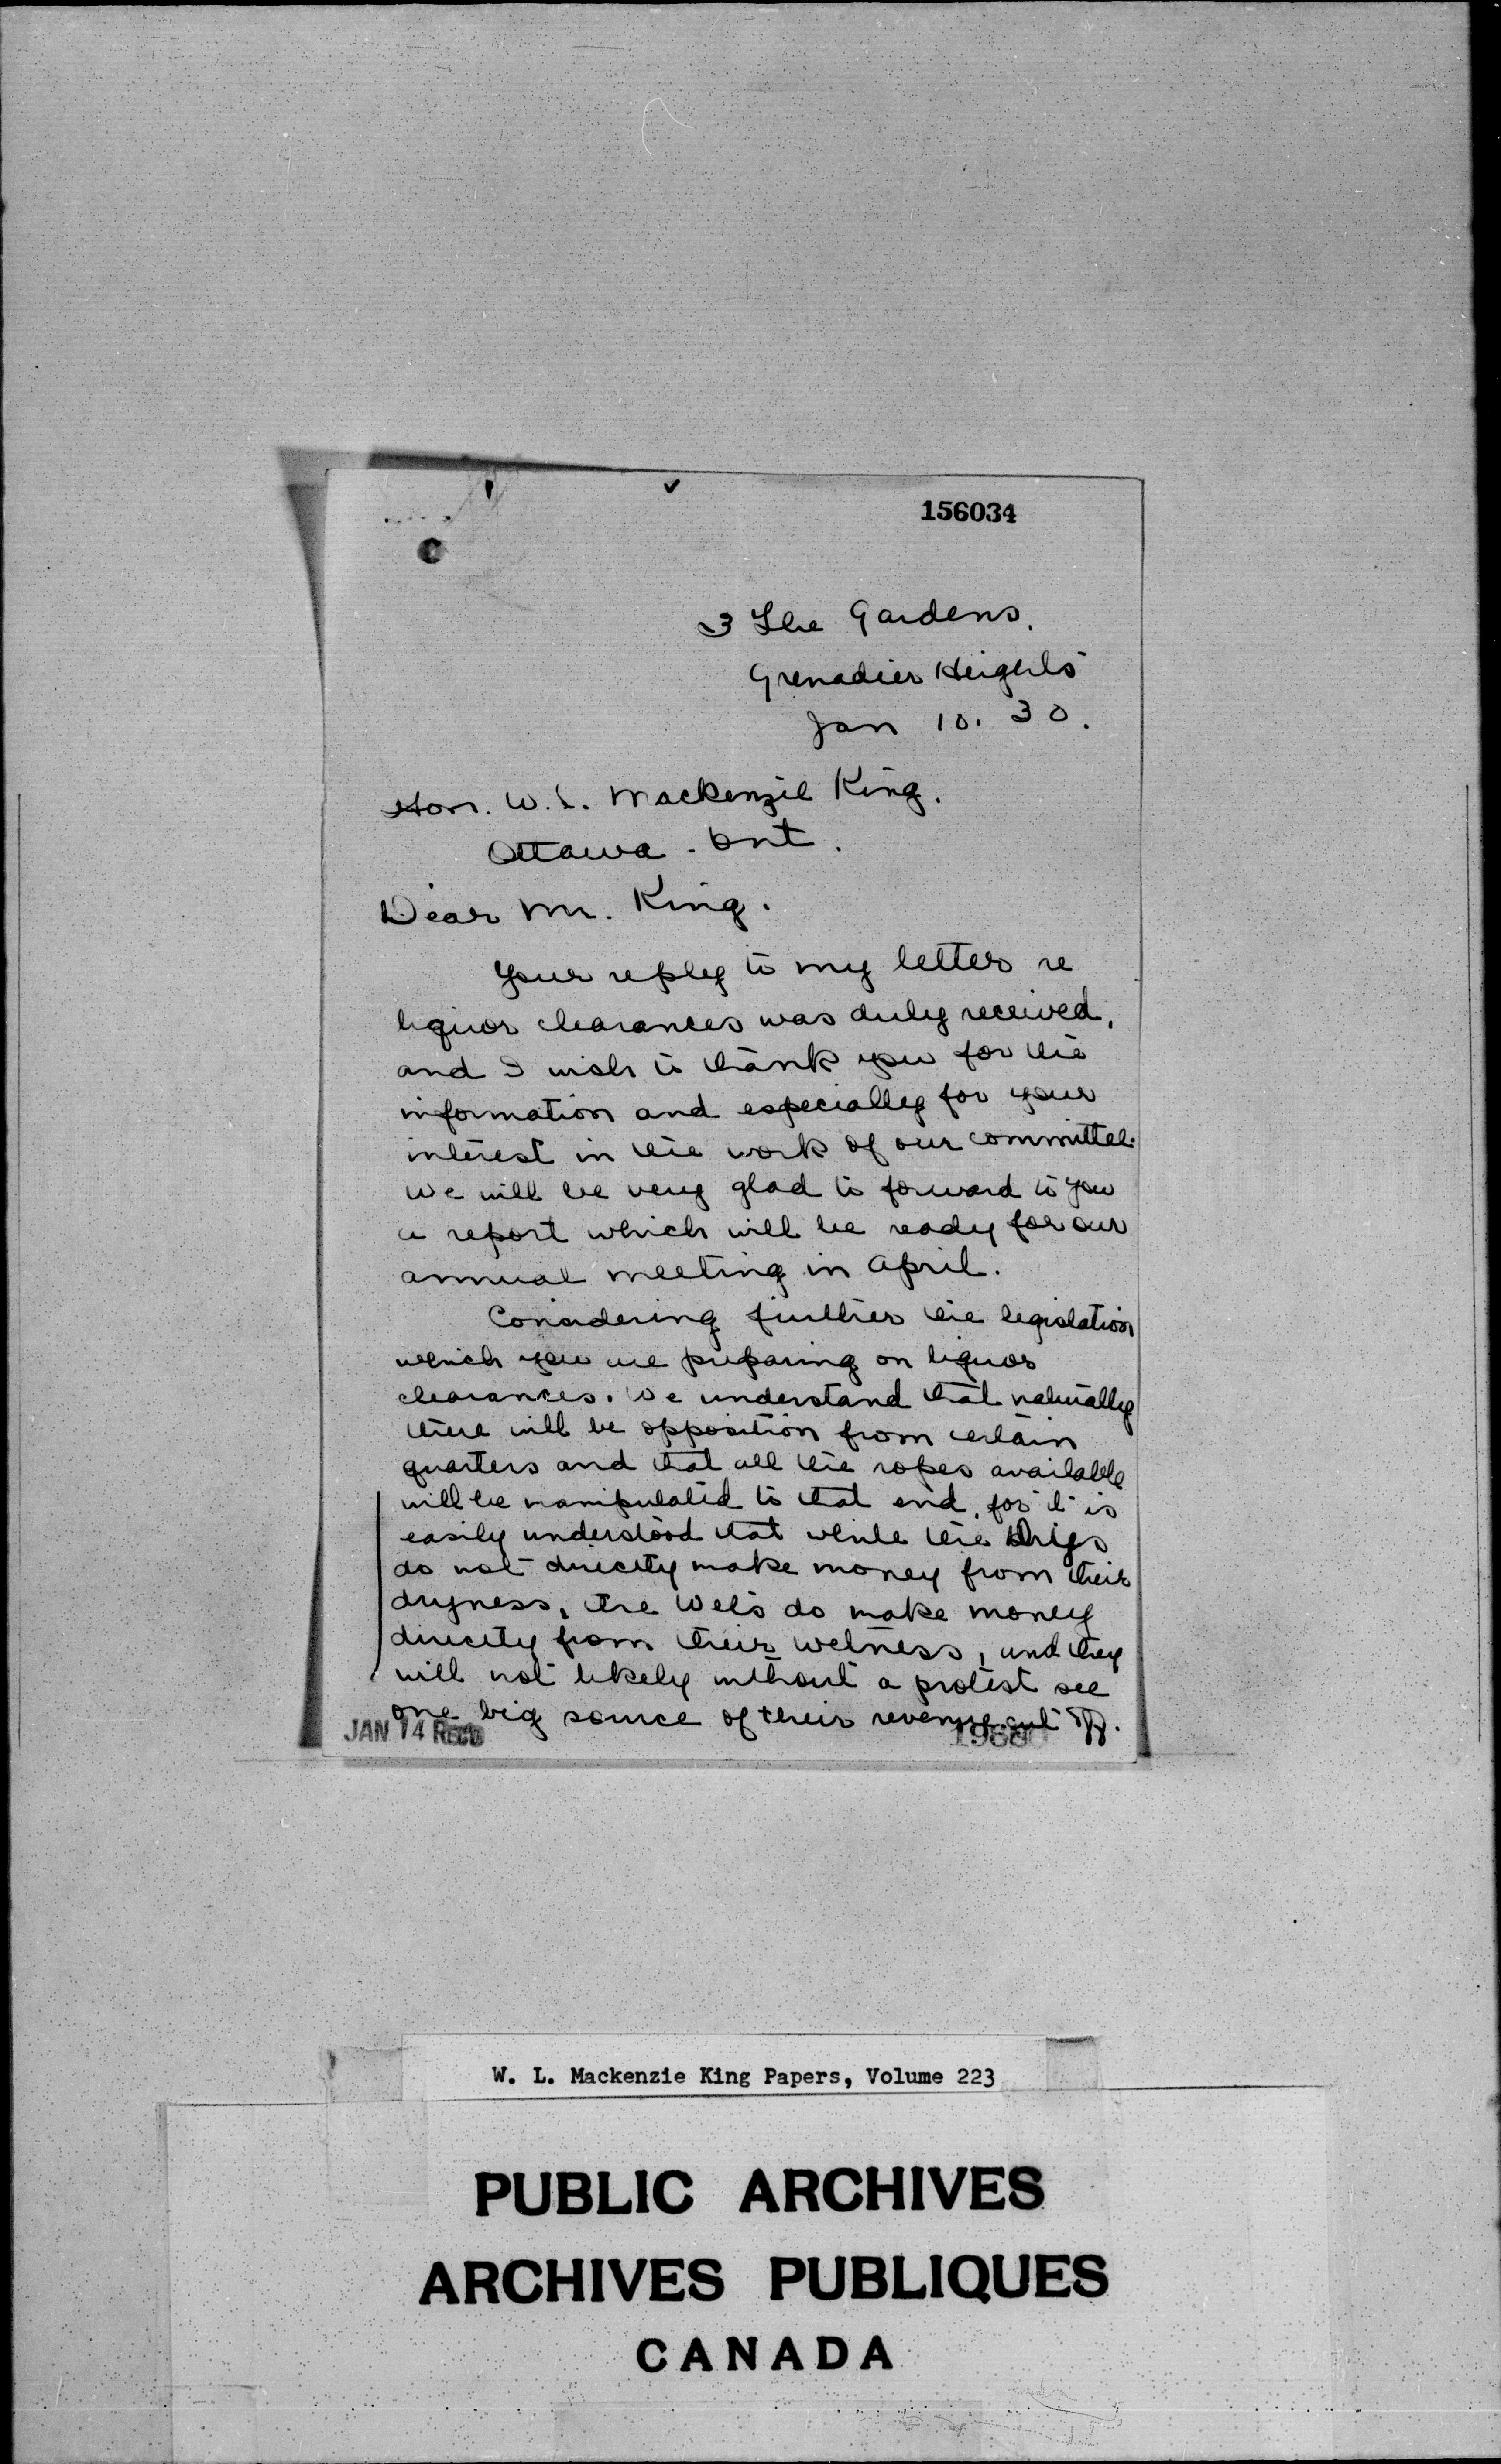 156034
3 The Gardens.
Grenadier Heights
Jan 10. 30.
Hon. W. L. Mackenzie King.
Ottawa - Ont.
Dear Mr. King.
Your reply to my letter re
liquor clearances was duly received,
and I wish to thank you for the
information and especially for your
interest in the work of our committee.
We will be very glad to forward to you
a report which will be ready for our
annual meeting in April.
Considering further the legislation
which you are preparing on liquor
clearances. We understand that naturally
there will be opposition from certain
quarters and that all the ropes available
will be manipulated to that end, for it is
easily understood that while the Drys
do not directly make money from their
dryness, the Wets do make money
directly from their wetness, and they
will not likely without a protest see
one big source of their revenue cut off.
JAN 14 REC'D
W. L. Mackenzie King Papers, Volume 223
PUBLIC ARCHIVES
ARCHIVES PUBLIQUES
CANADA